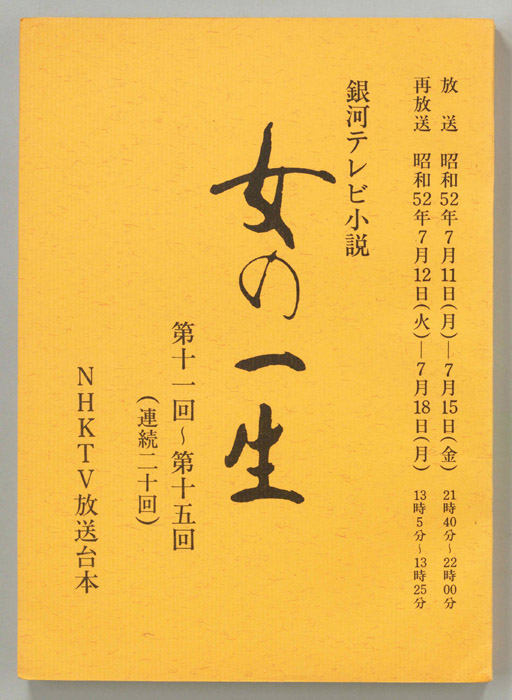 放送 昭和52年7月11日(月)―7月15日(金) 21時40分~22時00分
再放送 昭和52年7月12日(火)―7月18日(月) 13時5分~13時25分
銀河テレビ小説
女の一生
第十一回~第十五回
(連続二十回)
NHKTV放送台本